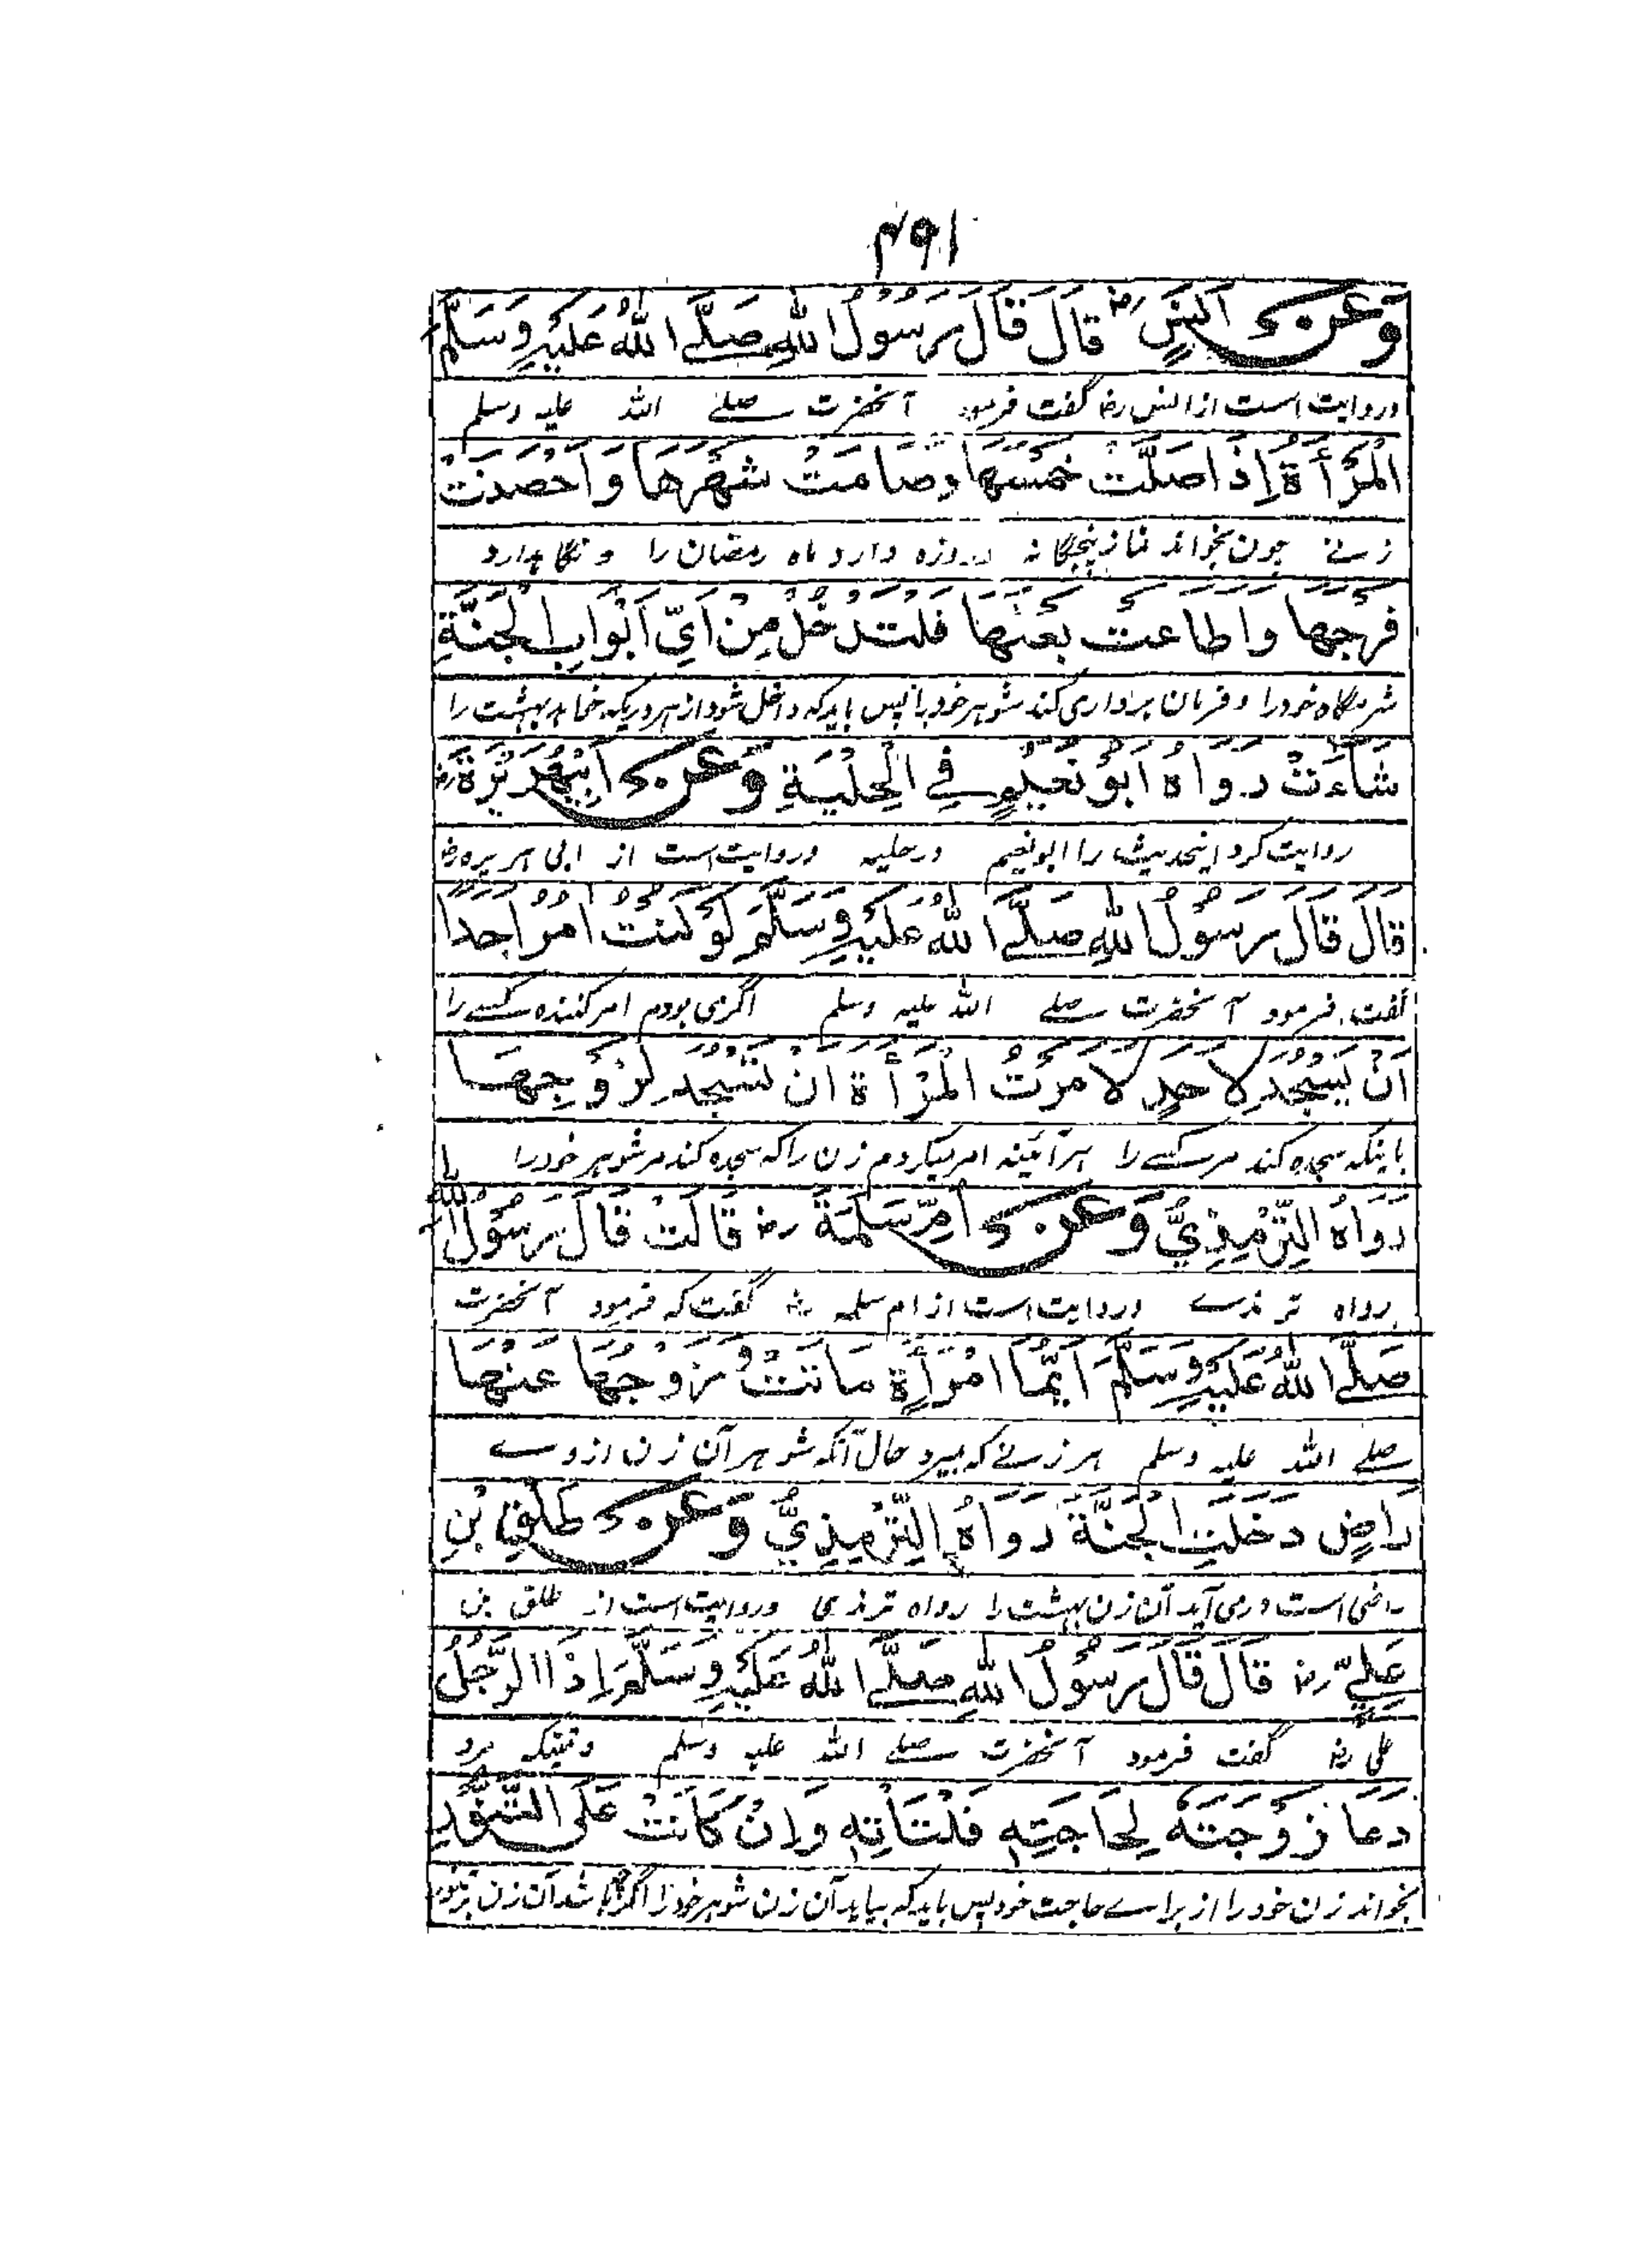 ۴۹۱
وَعَنْ اَنَسٍ رض قَالَ قَالَ رَسُوْلُ اللّٰهِ صَلَّے اللّٰهُ عَلَيْهِ وَسَلَّمَ
وروایت است از انس رض گفت فرمود آنحضرت صلے اللہ علیہ وسلم
الْمَرْأَةُ اِذَا صَلَّتْ خَمْسَهَا وَصَامَتْ شَهْرَهَا وَاَحْصَنَتْ
زنے چون بخواند نماز پنجگانہ و روزہ دارد ماہ رمضان را و نگاہدارد
فَرْجَهَا وَاَطَاعَتْ بَعْلَهَا فَلْتَدْخُلْ مِنْ اَيِّ اَبْوَابِ الْجَنَّةِ
شرمگاہ خود را و فرمان برداری کند شوہر خود را پس باید کہ داخل شود از ہر دریکہ خواہد بہشت را
شَاءَتْ رَوَاهُ اَبُوْ نُعَيْمٍ فِي الْحِلْيَةِ وَعَنْ اَبِيْ هُرَيْرَةَ رض
روایت کرد اینحدیث را ابو نعیم در حلیہ وروایت است از ابی ہریرہ رض
قَالَ قَالَ رَسُوْلُ اللّٰهِ صَلَّے اللّٰهُ عَلَيْهِ وَسَلَّمَ لَوْ كُنْتُ اٰمُرُ اَحَدًا
گفت فرمود آنحضرت صلے اللہ علیہ وسلم اگر می بودم امر کنندہ کسے را
اَنْ يَسْجُدَ لِاَحَدٍ لَاَمَرْتُ الْمَرْأَةَ اَنْ تَسْجُدَ لِزَوْجِهَا
باینکہ سجدہ کند مر کسے را ہر آئینہ امر میکردم زن را کہ سجدہ کند مر شوہر خود را
رَوَاهُ التِّرْمِذِيُّ وَعَنْ اُمِّ سَلَمَةَ رض قَالَتْ قَالَ رَسُوْلُ اللّٰهِ
رواہ ترمذے وروایت است از ام سلمہ رض گفت کہ فرمود آنحضرت
صَلَّے اللّٰهُ عَلَيْهِ وَسَلَّمَ اَيُّمَا امْرَأَةٍ مَاتَتْ وَزَوْجُهَا عَنْهَا
صلے اللہ علیہ وسلم ہر زنے کہ بمیرد حال آنکہ شوہر آن زن از وے
رَاضٍ دَخَلَتِ الْجَنَّةَ رَوَاهُ التِّرْمِذِيُّ وَعَنْ طَلْقِ بْنِ
راضی است درمی آید آن زن بہشت را رواہ ترمذی وروایت است از طلق بن
عَلِيٍّ رض قَالَ قَالَ رَسُوْلُ اللّٰهِ صَلَّے اللّٰهُ عَلَيْهِ وَسَلَّمَ اِذَا الرَّجُلُ
علی رض گفت فرمود آنحضرت صلے اللہ علیہ وسلم وقتیکہ مرد
دَعَا زَوْجَتَهٗ لِحَاجَتِهٖ فَلْتَأْتِهٖ وَاِنْ كَانَتْ عَلَى التَّنُّوْرِ
بخواند زن خود را از برائے حاجت خود پس باید کہ بیاید آن زن شوہر خود را اگرچہ باشد آن زن بر تنور